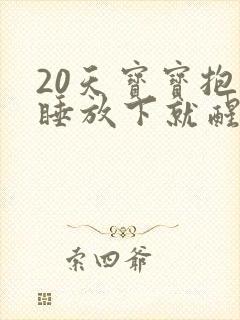 20天寶寶抱
睡放下就醒
索四爺